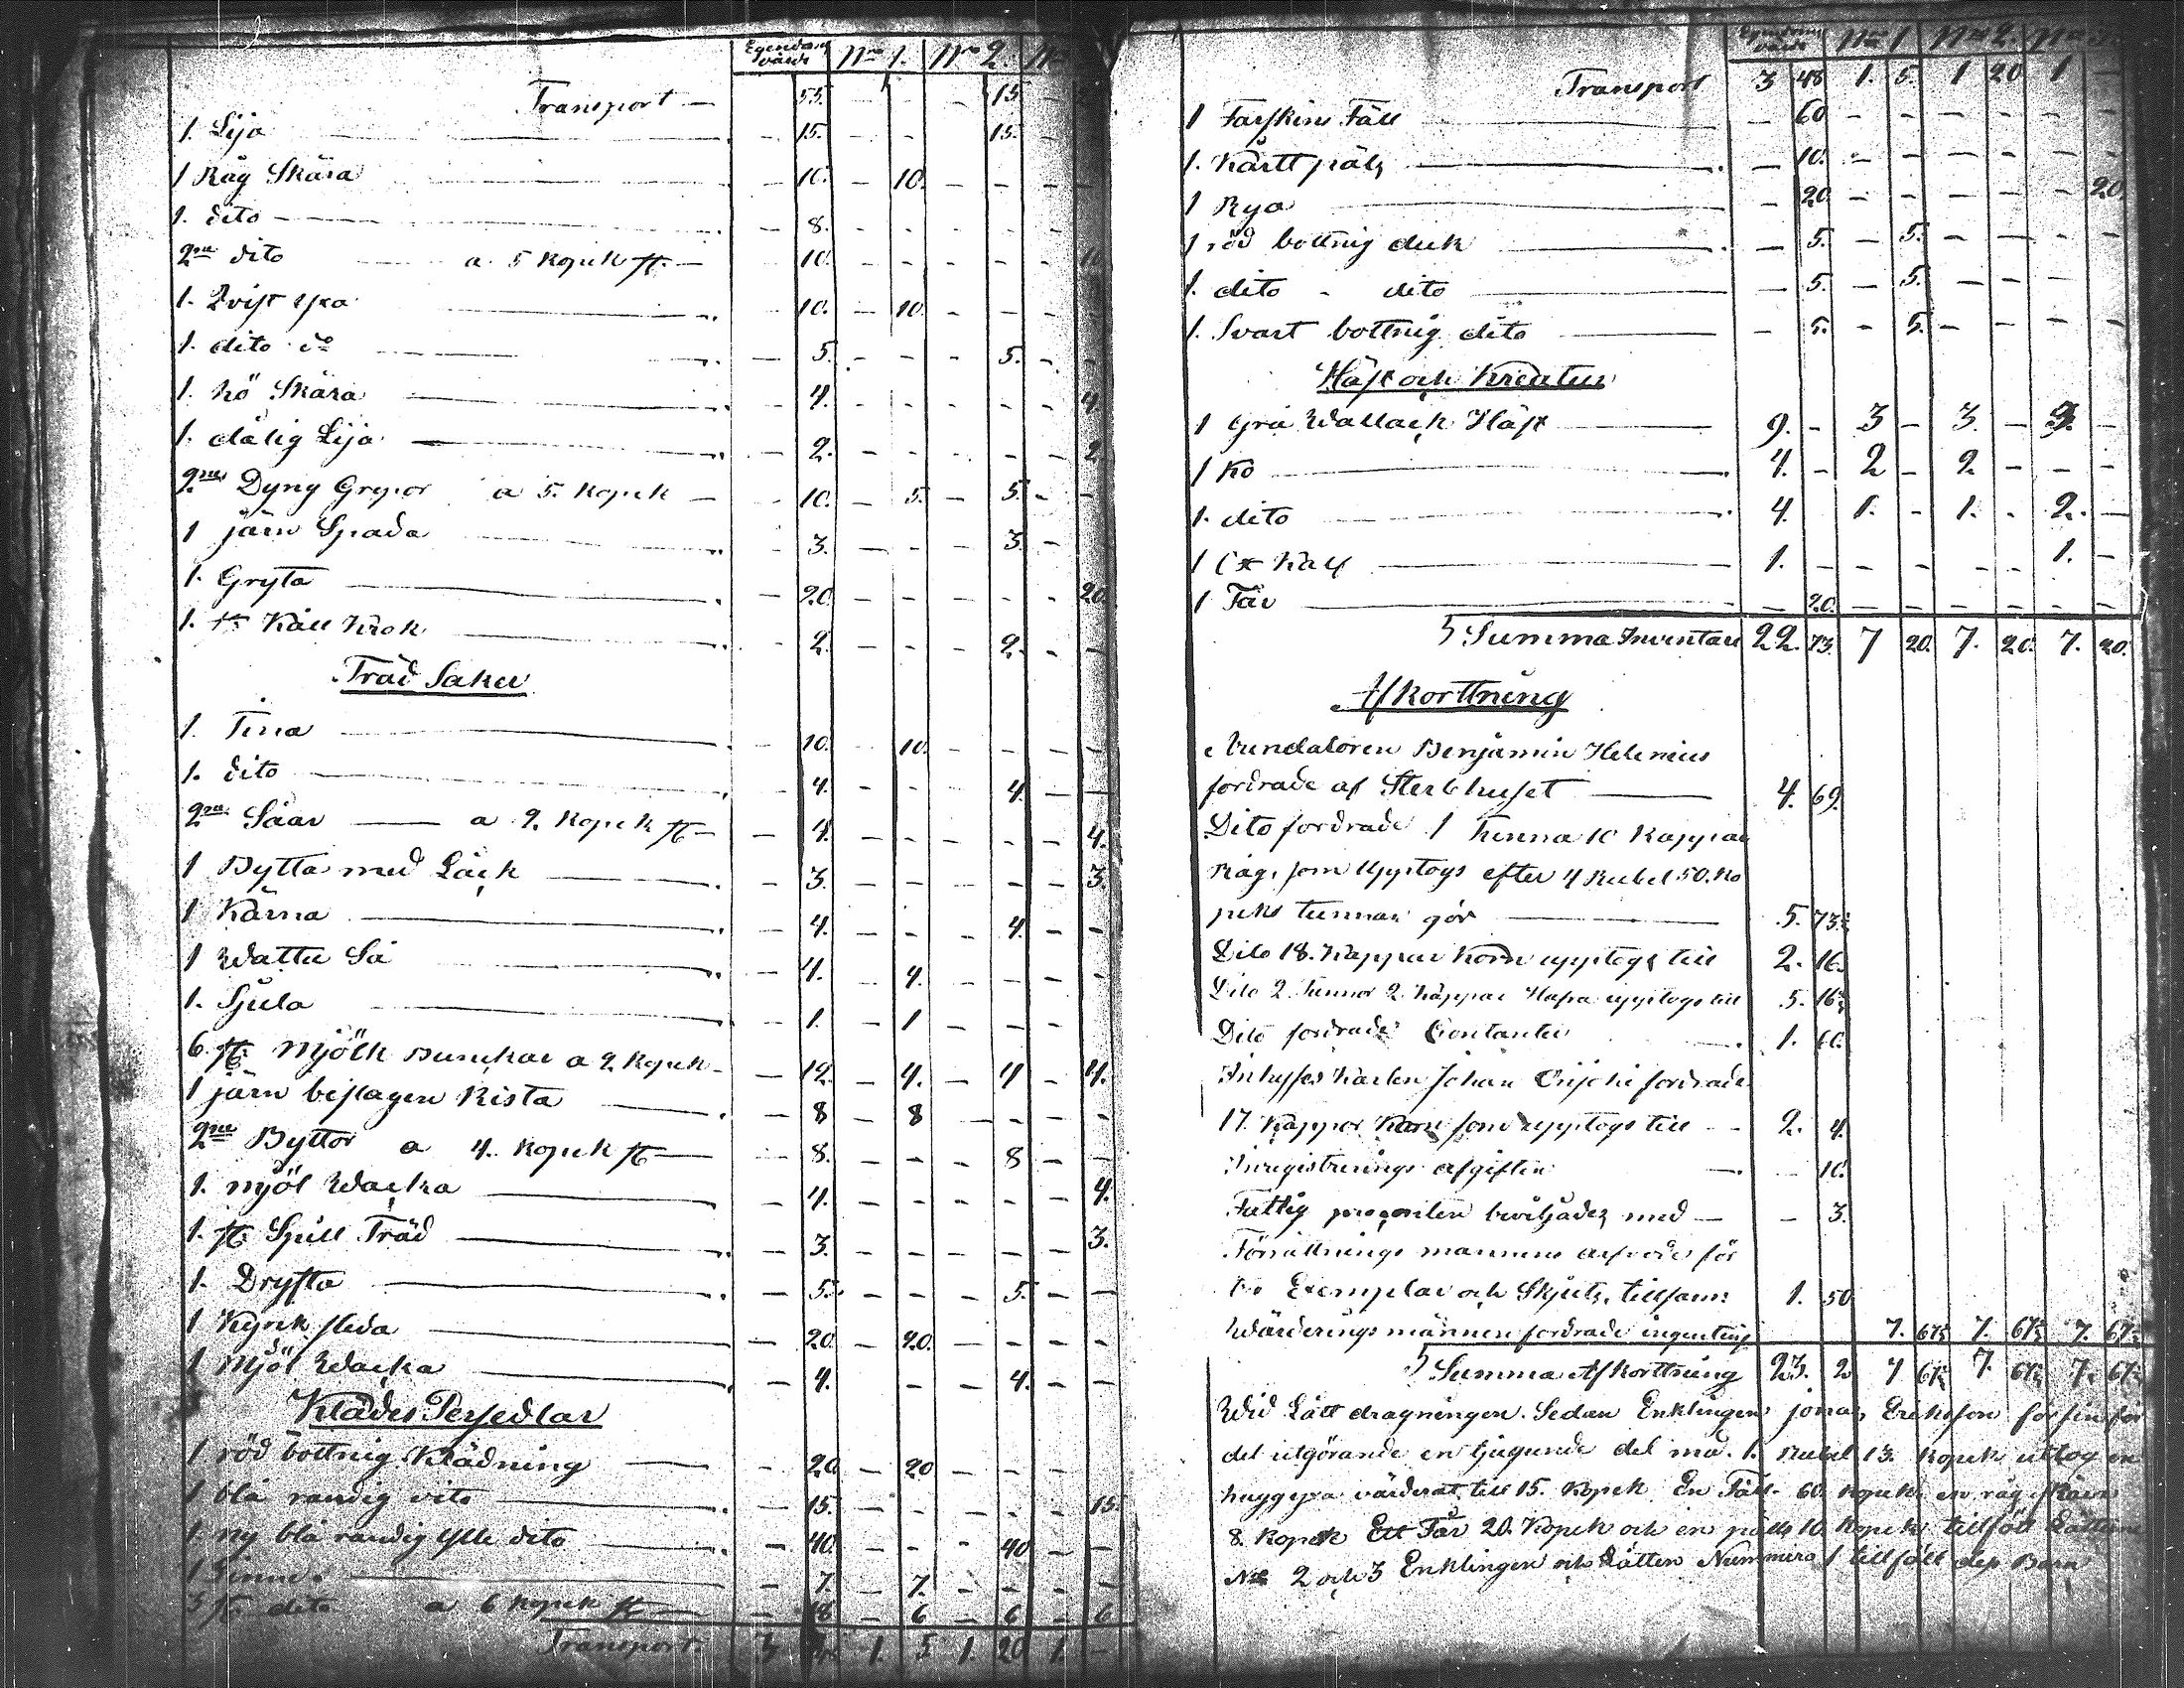 Egendoms värde Nro 1. Nro 2.
Transport — 55. 15
1. Lija 15. 15.
1 Råg Skära 10. 10.
1. dito 8.
2ne dito a 5 Kopek st. 10. 10
1. Qvist yxa 10. 10.
1. dito do 5. 5.
1. hö Skära 4. 4
1. dålig Lija 2. 2
2ne Dyng Grepor a 5. Kopek 10. 5. 5.
1 järn Spada 3. 3.
1. Gryta 20. 20
1. st Käll Krok 2. 2.
Träd Saker
1. Tina 10. 10.
1. dito 4. 4.
2ne Såar a 2. Kopek st 4. 4.
1 Bytta med Låck 3. 3.
1 Kärna 4. 4.
1 Wattu Så 4. 4.
1. Sjula 1. 1
6. st. Mjölk Bunckar a 2. Kopek 12. 4. 4 4.
1 järn beslagen Kista 8 8
2ne Byttor a 4. Kopek st 8. 8
1. Mjöl Wacka 4. 4.
1. st. Spill Träd 3. 3.
1. Dryfta 5. 5.
1 Kyrck släda 20. 20.
1 Mjöl Wacka 4. 4.
Kläder Persedlar
1 röd bottnig Klädning 20 20
1 blå randig dito 15. 15.
1. ny blå randig ylle dito 40. 40
1 7. 7.
3 st. dito a 6 Kopek st 18 6 6 6
Transport. 3 48 1. 5 1. 20 1. —
Egendoms värde Nro 1 Nro 2. Nro 3.
Transport 3 48 1. 5. 1 20 1 —
1 Fårskins Fäll 60
1. Kårtt päls 10.
1 Rya 20 20.
1 röd bottnig duk 5. 5.
1. dito - dito 5. 5.
1. Svart bottnig dito 5. 5.
Häst och Kreatur
1 Grå Wallack Häst 9. 3 3. 3.
1 Ko 4. 2 2.
1. dito 4. 1. 1. 2.
1 Kalf 1. 1.
1 Får 20.
Summa Inventari 22. 73. 7 20. 7. 20. 7. 20.
Afkorttning
Arrendatoren Benjamin Helenius
fordrade af Sterbhuset 4. 69.
Dito fordrade 1 Tunna 10 Kappar
Råg, som Upptogs efter 4 Rubel 50. Ko
peks tunnan gör 5. 73
Dito 18. Kappar Korn upptogs till 2. 16.
Dito 2. Tunnor 2. Kappar Hafra upptogs till 5. 16
Dito fordrade Contanter 1. 60.
Inhyses Karlen Johan fordrade
17. Kappor Korn som upptogs till 2. 4.
Inregistrerings afgiften 10.
Fattig procenten beviljades med 3.
Förrättnings mannens arfvode för
Exemplar och Skjuts, tillsam: 1. 50
Wärderings männen fordrade ingenting 7. 67½ 7. 67½ 7. 67½
Summa Afkorttning 23. 2 7 67½ 7. 67½ 7. 67½
Wid Lått dragningen. Sedan Enklingen Jonas Eriksson för sin för
del utgörande en tjugunde del med. 1. Rubel 13. Kopek uttog en
hugg yxa värderat till 15. Kopek En Fäll 60. Kopek en råg skära
8. Kopek Ett Får 20. Kopek och en päls 10. Kopek tillföll Låtterne
No 2 och 3 Enklingen och Låtten Nummero 1 tillföll dess Barn